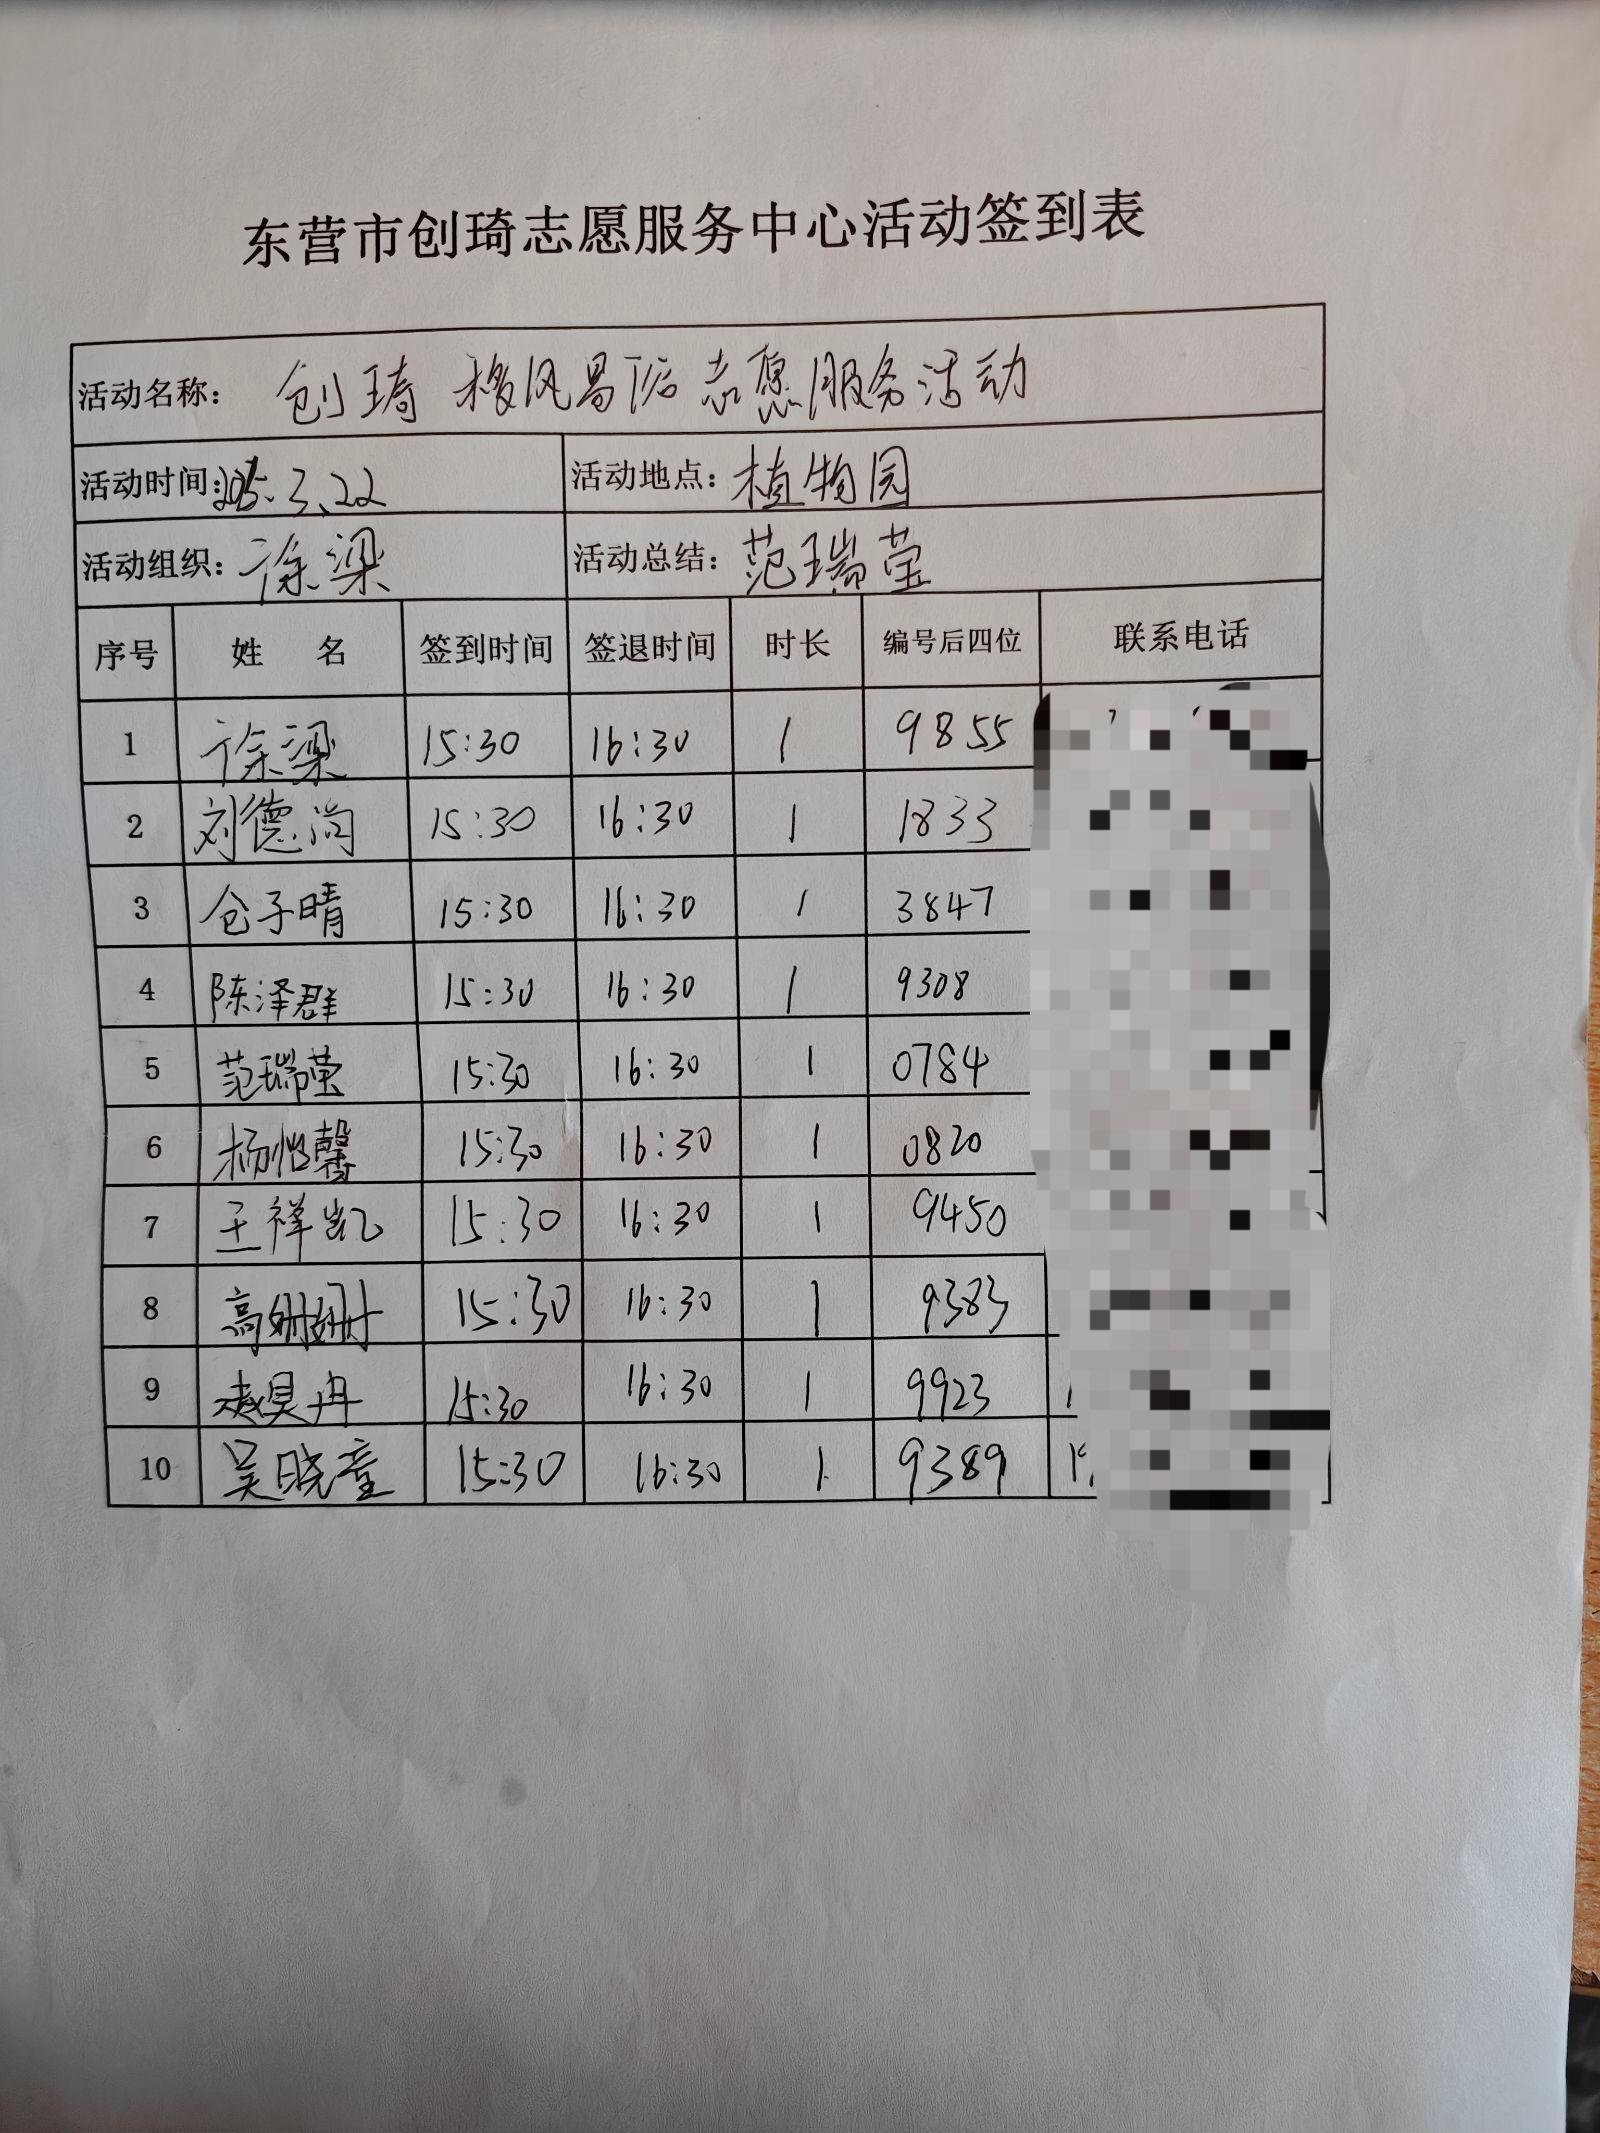 东营市创琦志愿服务中心活动签到表
活动名称: 创琦 移风易俗志愿服务活动
活动时间: 2025.3.22 活动地点: 植物园
活动组织: 徐梁 活动总结: 范瑞莹
序号 姓 名 签到时间 签退时间 时长 编号后四位 联系电话
1 徐梁 15:30 16:30 1 9855
2 刘德尚 15:30 16:30 1 1833
3 仓子晴 15:30 16:30 1 3847
4 陈泽群 15:30 16:30 1 9308
5 范瑞莹 15:30 16:30 1 0784
6 杨怡馨 15:30 16:30 1 0820
7 王祥凯 15:30 16:30 1 9450
8 高姗姗 15:30 16:30 1 9383
9 赵昊冉 15:30 16:30 1 9923
10 吴晓童 15:30 16:30 1 9389